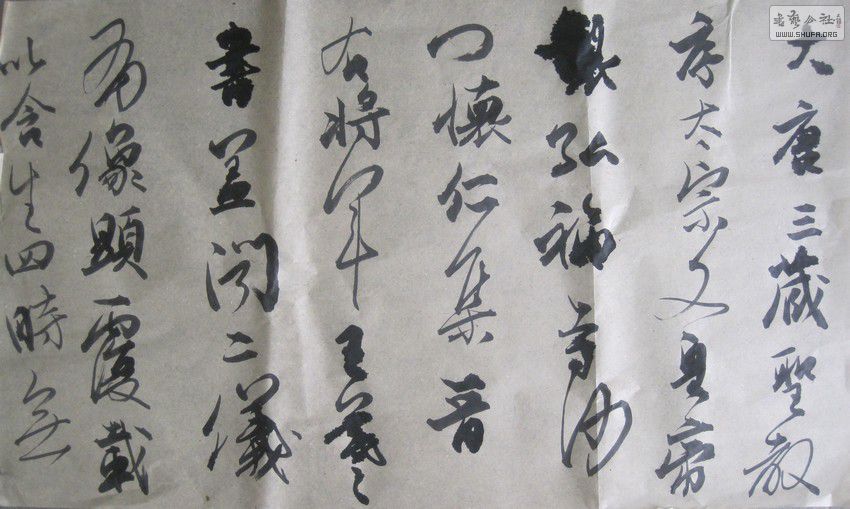 大唐三蔵聖教
序太宗文皇帝
弘福寺沙
門懐仁集晉
右將軍王羲之
書蓋聞二儀
有像顯覆載
以含生四時無
書藝公社
WWW.SHUFA.ORG